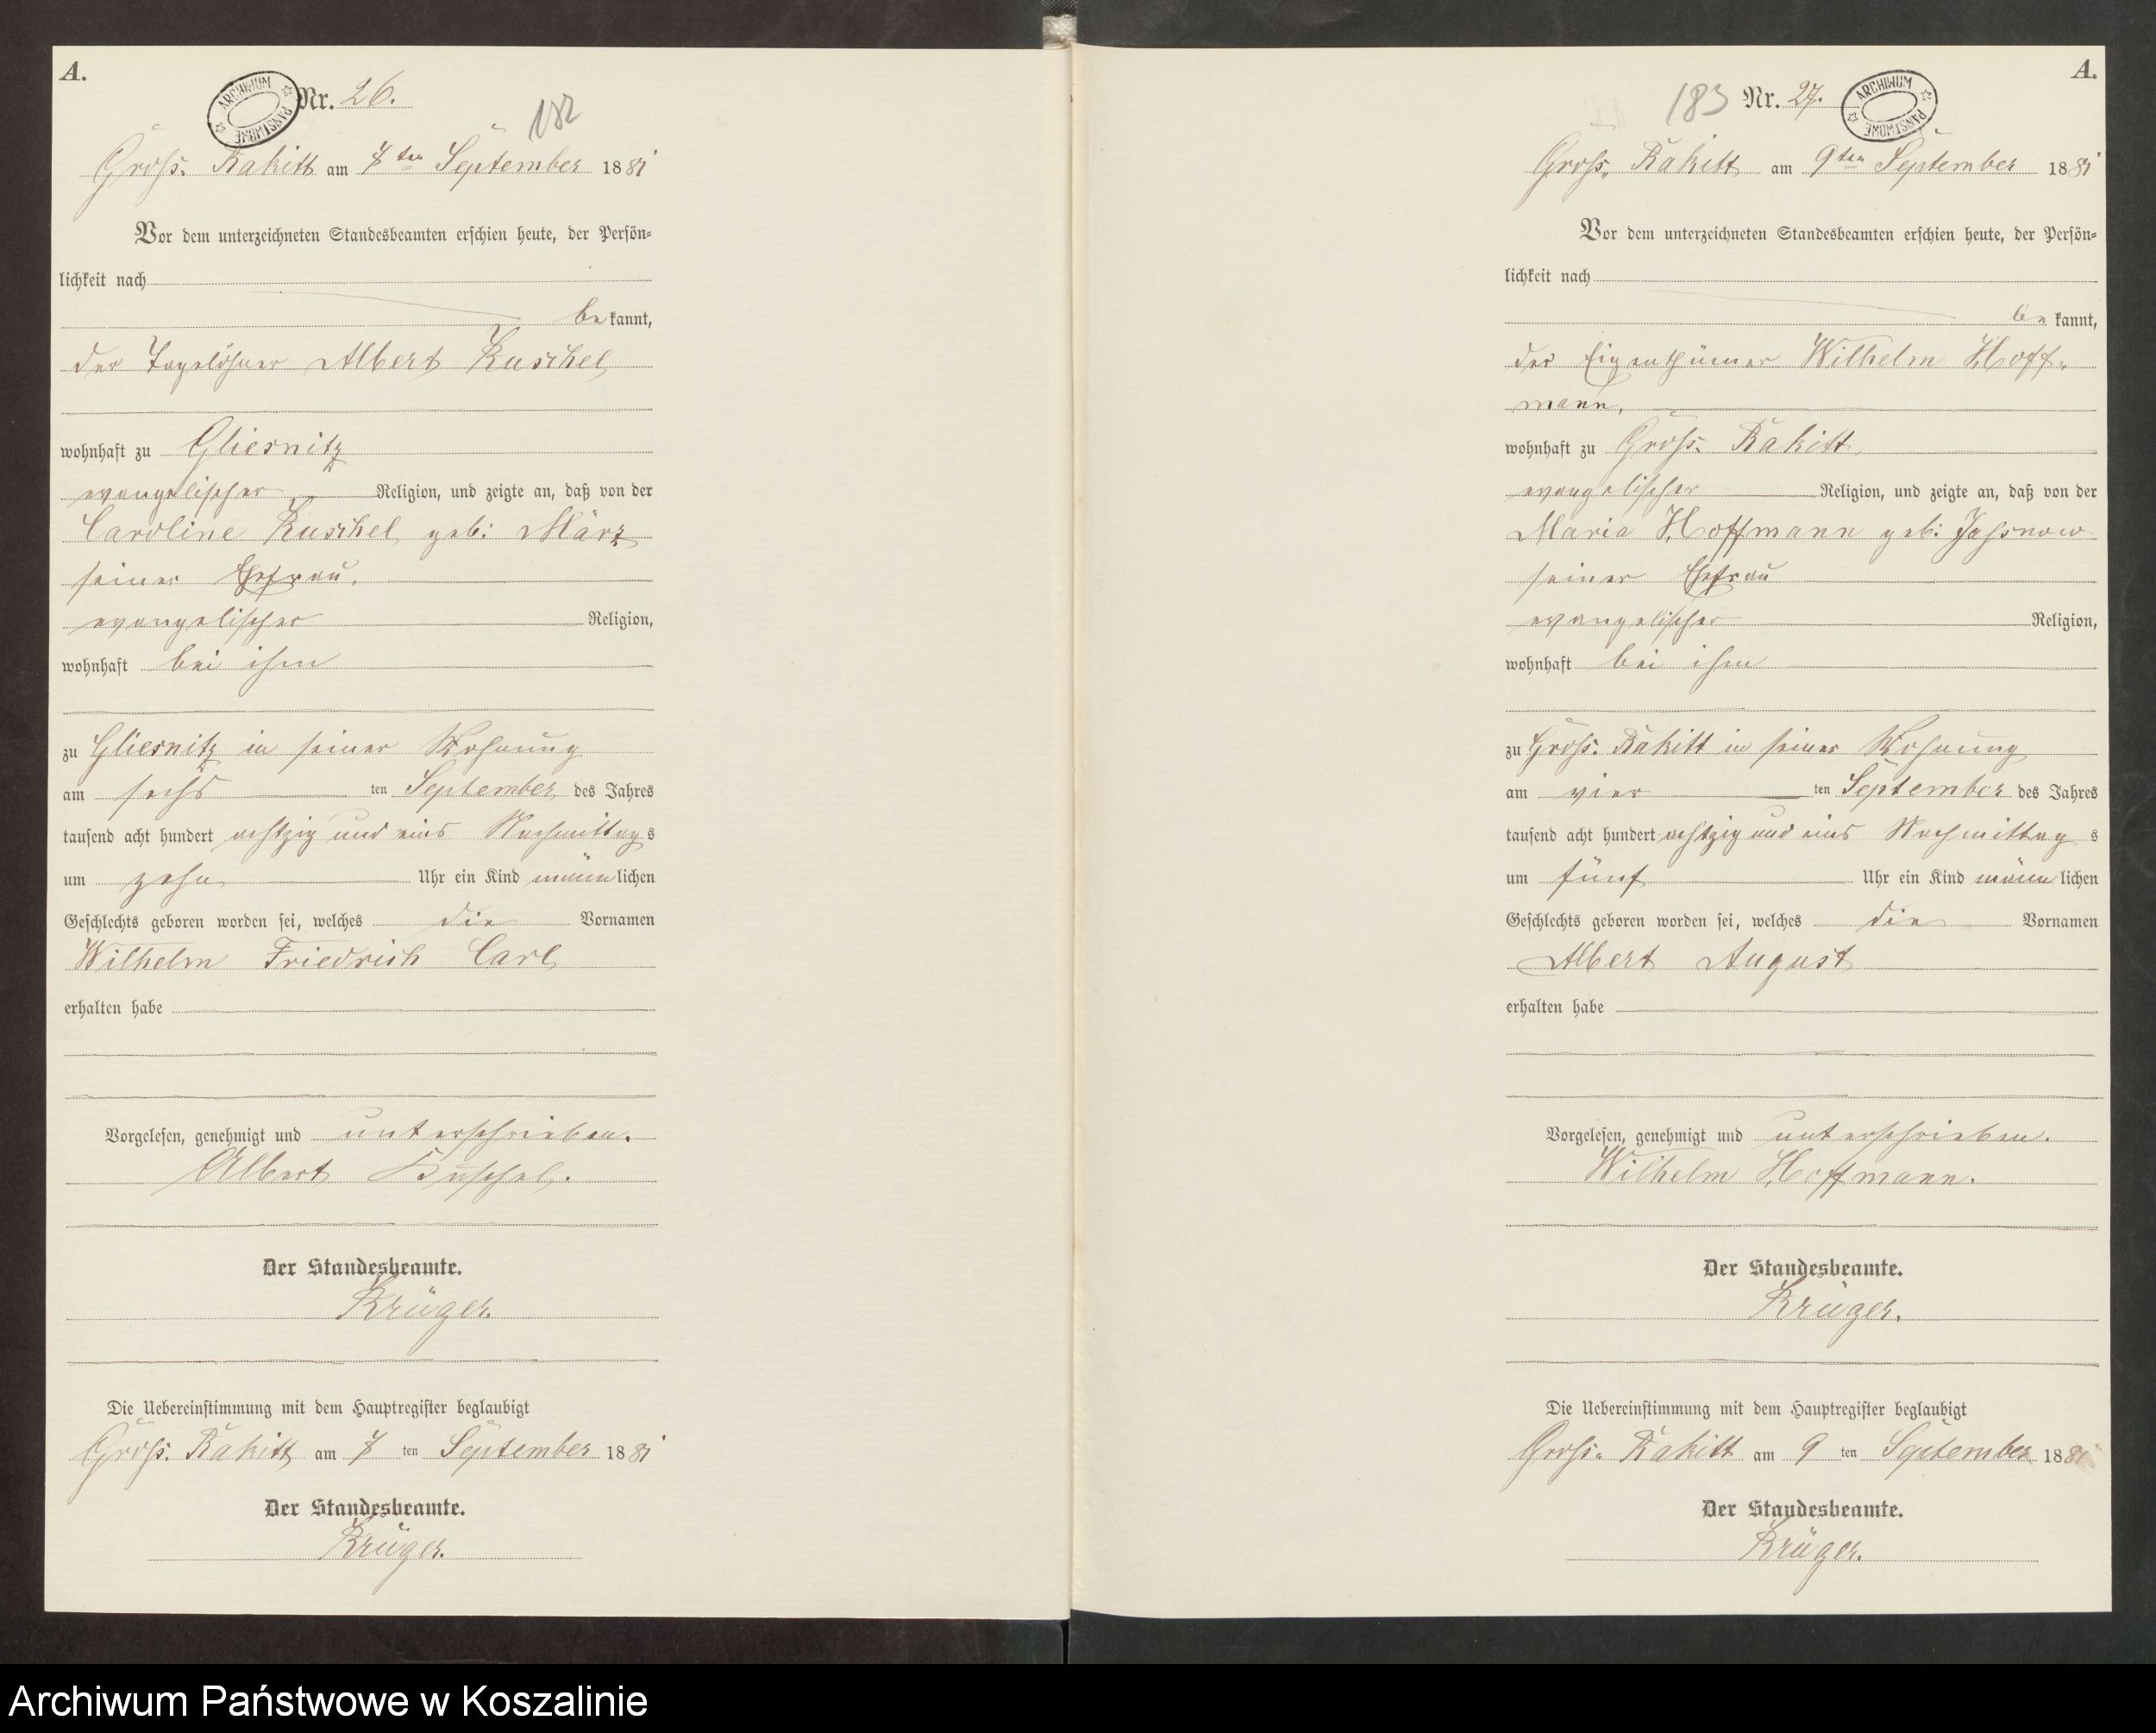 A.
ARCHIWUM PAŃSTWOWE
Nr. 26.
182
Gross. Rakitt am 7ten September 1881
Vor dem unterzeichneten Standesbeamten erschien heute, der Persön-
lichkeit nach
be kannt,
der Tagelöhner Albert Kuschel
wohnhaft zu Gliesnitz
evangelischer Religion, und zeigte an, daß von der
Caroline Kuschel geb: März
seiner Ehefrau.
evangelischer Religion,
wohnhaft bei ihm
zu Gliesnitz in seiner Wohnung
am sechs ten September des Jahres
tausend acht hundert achtzig und eins Nachmittags
um zehn Uhr ein Kind männlichen
Geschlechts geboren worden sei, welches die Vornamen
Wilhelm Friedrich Carl
erhalten habe
Vorgelesen, genehmigt und unterschrieben.
Albert Kuschel.
Der Standesbeamte.
Krüger.
Die Uebereinstimmung mit dem Hauptregister beglaubigt
Gross. Rakitt am 7 ten September 1881
Der Standesbeamte.
Krüger.
A.
183
Nr. 27.
ARCHIWUM PAŃSTWOWE
Gross. Rakitt am 9ten September 1881
Vor dem unterzeichneten Standesbeamten erschien heute, der Persön-
lichkeit nach
be kannt,
der Eigenthümer Wilhelm Hoff-
mann,
wohnhaft zu Gross. Rakitt
evangelischer Religion, und zeigte an, daß von der
Maria Hoffmann geb: Jahsnow
seiner Ehefrau
evangelischer Religion,
wohnhaft bei ihm
zu Gross. Rakitt in seiner Wohnung
am vier ten September des Jahres
tausend acht hundert achtzig und eins Nachmittag s
um fünf Uhr ein Kind männlichen
Geschlechts geboren worden sei, welches die Vornamen
Albert August
erhalten habe
Vorgelesen, genehmigt und unterschrieben.
Wilhelm Hoffmann.
Der Standesbeamte.
Krüger.
Die Uebereinstimmung mit dem Hauptregister beglaubigt
Gross. Rakitt am 9 ten September 1881
Der Standesbeamte.
Krüger.
Archiwum Państwowe w Koszalinie